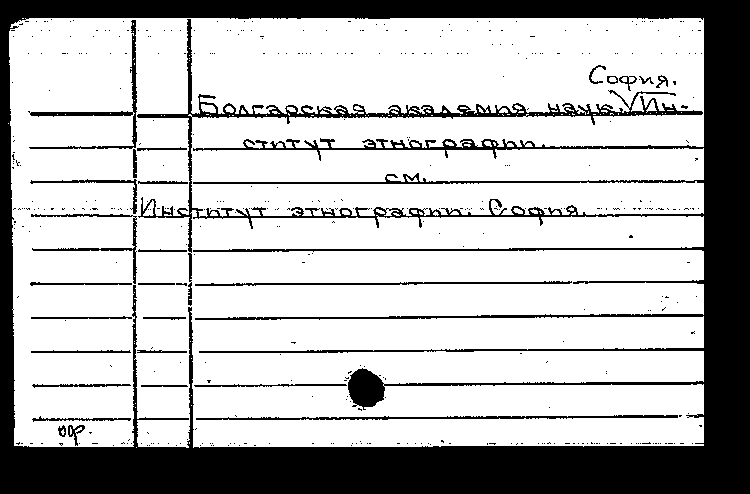 София.
Болгарская академия наук. Ин-
ститут этнографии.
см.
Институт этнографии. София.